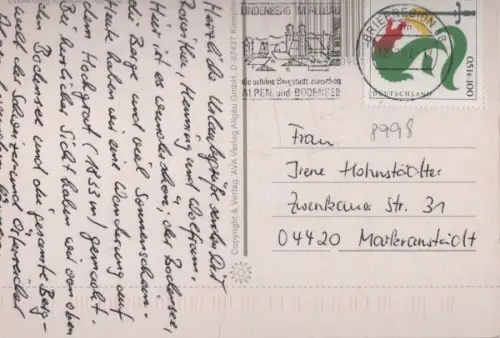 Herzliche Urlaubsgrüße senden Dir
Henning und Wolfram.
Hier ist es wunderschön, der Bodensee,
die Berge und viel Sonnenschein.
Heute haben wir eine Wanderung auf
dem Hochgrat (1833 m) gemacht.
Bei herrlicher Sicht haben wir von oben
den Bodensee und die gesamte Berg-
welt der Schweizer und Österreicher
Copyright & Verlag: AVA Verlag Allgäu GmbH, D-87437 Kempten
LINDENBERG IM ALLGÄU
die schöne Bergstadt zwischen
ALPEN und BODENSEE
BRIEFREGION
DEUTSCHLAND
0,51€ 100
8998
Frau
Irene Hohnstädter
Zwenkauer Str. 31
04420 Markranstädt